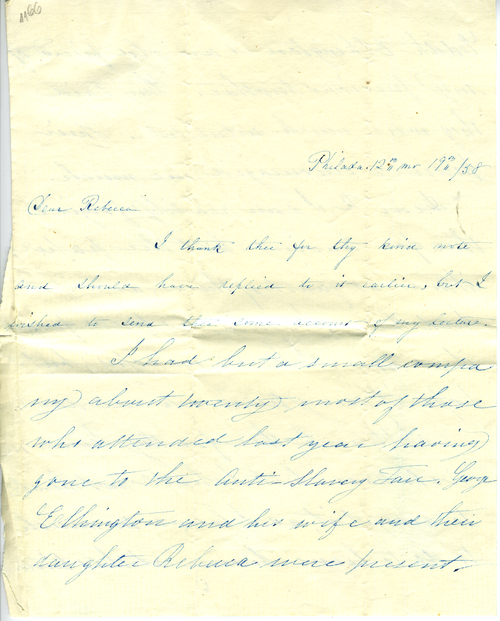 1166
Philada. 12th mo 19th /58
Dear Rebecca
I thank thee for thy kind note
and should have replied to it earlier, but I
wished to send thee some account of my lecture.
I had but a small compa
ny about twenty, most of those
who attended last year having
gone to the Anti-Slavery Fair. George
Elkington and his wife and their
daughter Rebecca were present.